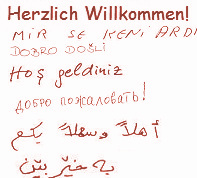 Herzlich Willkommen!
MIR SE KENI ARDH
DOBRO DOŠLI
Hoş geldiniz
ДОБРО ПОЖАЛОВАТЬ!
أهلاً وسهلاً بكم
به خێر بێن